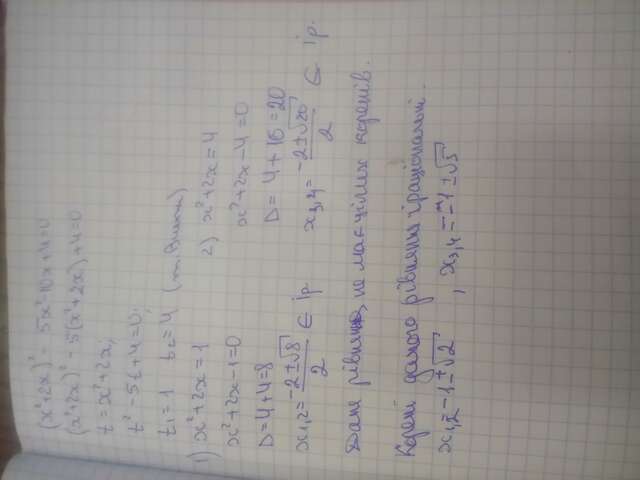 (x²+2x)² - 5x²-10x+4=0
(x²+2x)² - 5(x²+2x)+4=0
t=x²+2x;
t²-5t+4=0;
t₁=1 t₂=4 (т. Вієта)
1) x²+2x=1
x²+2x-1=0
D=4+4=8
x₁,₂= (-2±√8)/2 ∈ Ір.
2) x²+2x=4
x²+2x-4=0
D=4+16=20
x₃,₄= (-2±√20)/2 ∈ Ір.
Дане рівняння не має цілих коренів.
Корені даного рівняння ірраціональні.
x₁,₂=-1±√2, x₃,₄=-1±√5